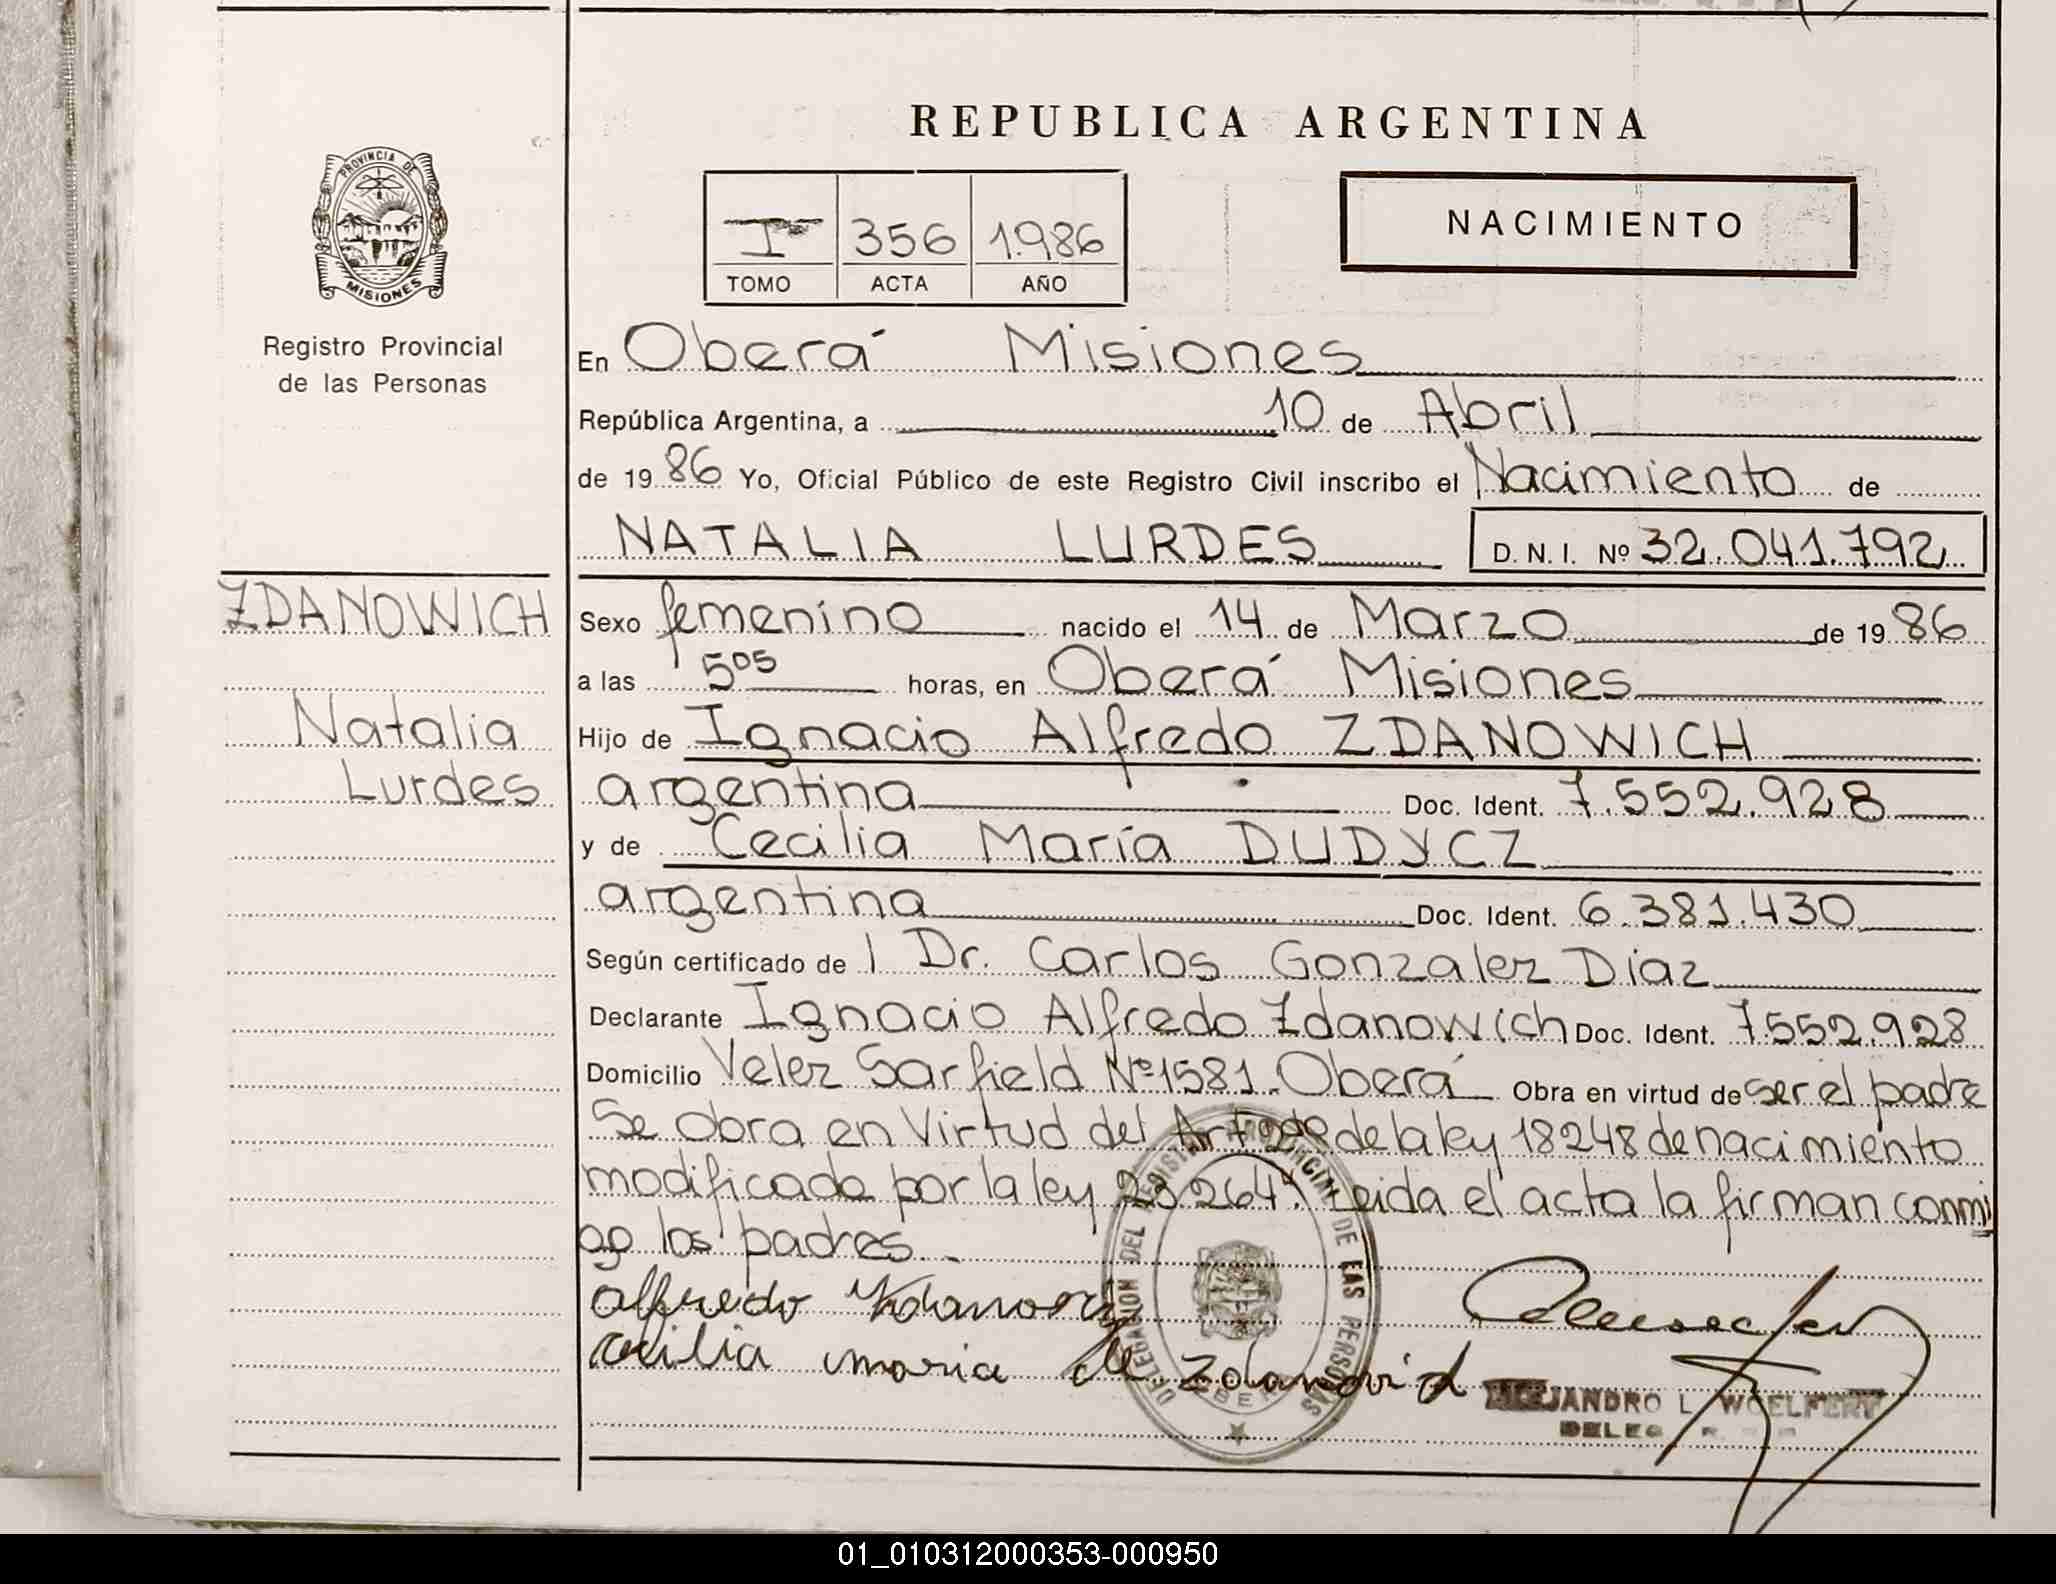 REPUBLICA ARGENTINA
PROVINCIA DE
MISIONES
Registro Provincial
de las Personas
I 356 1.986
TOMO ACTA AÑO
NACIMIENTO
En Oberá Misiones
República Argentina, a 10 de Abril
de 19 86 Yo, Oficial Público de este Registro Civil inscribo el Nacimiento de
NATALIA LURDES D. N. I. Nº 32.041.792
ZDANOWICH
Natalia
Lurdes
Sexo femenino nacido el 14 de Marzo de 19 86
a las 5 05 horas, en Oberá Misiones
Hijo de Ignacio Alfredo ZDANOWICH
argentina Doc. Ident. 7.552.928
y de Cecilia María DUDYCZ
argentina Doc. Ident. 6.381.430
Según certificado de l Dr. Carlos Gonzalez Diaz
Declarante Ignacio Alfredo Zdanowich Doc. Ident. 7.552.928
Domicilio Velez Sarfield Nº 1581. Oberá Obra en virtud de ser el padre
Se obra en Virtud del Art de la ley 18248 de nacimiento
modificado por la ley 23.264. Leida el acta la firman conmi
go los padres.
DELEGACION DEL REGISTRO PROVINCIAL DE LAS PERSONAS
alfredo
cecilia maria de
ALEJANDRO L. WOELFERT
01_010312000353-000950